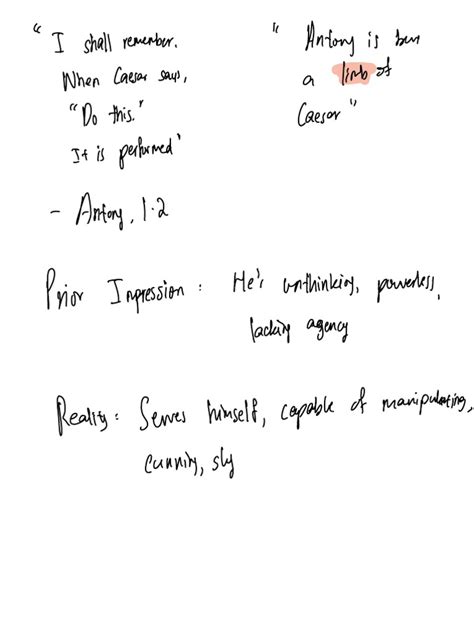 "I shall remember.
When Caesar says,
"Do this."
It is performed"
- Antony, 1.2
"Antony is but
a limb of
Caesar"
Prior Impression: He's unthinking, powerless,
lacking agency
Reality: Serves himself, capable of manipulating,
cunning, sly